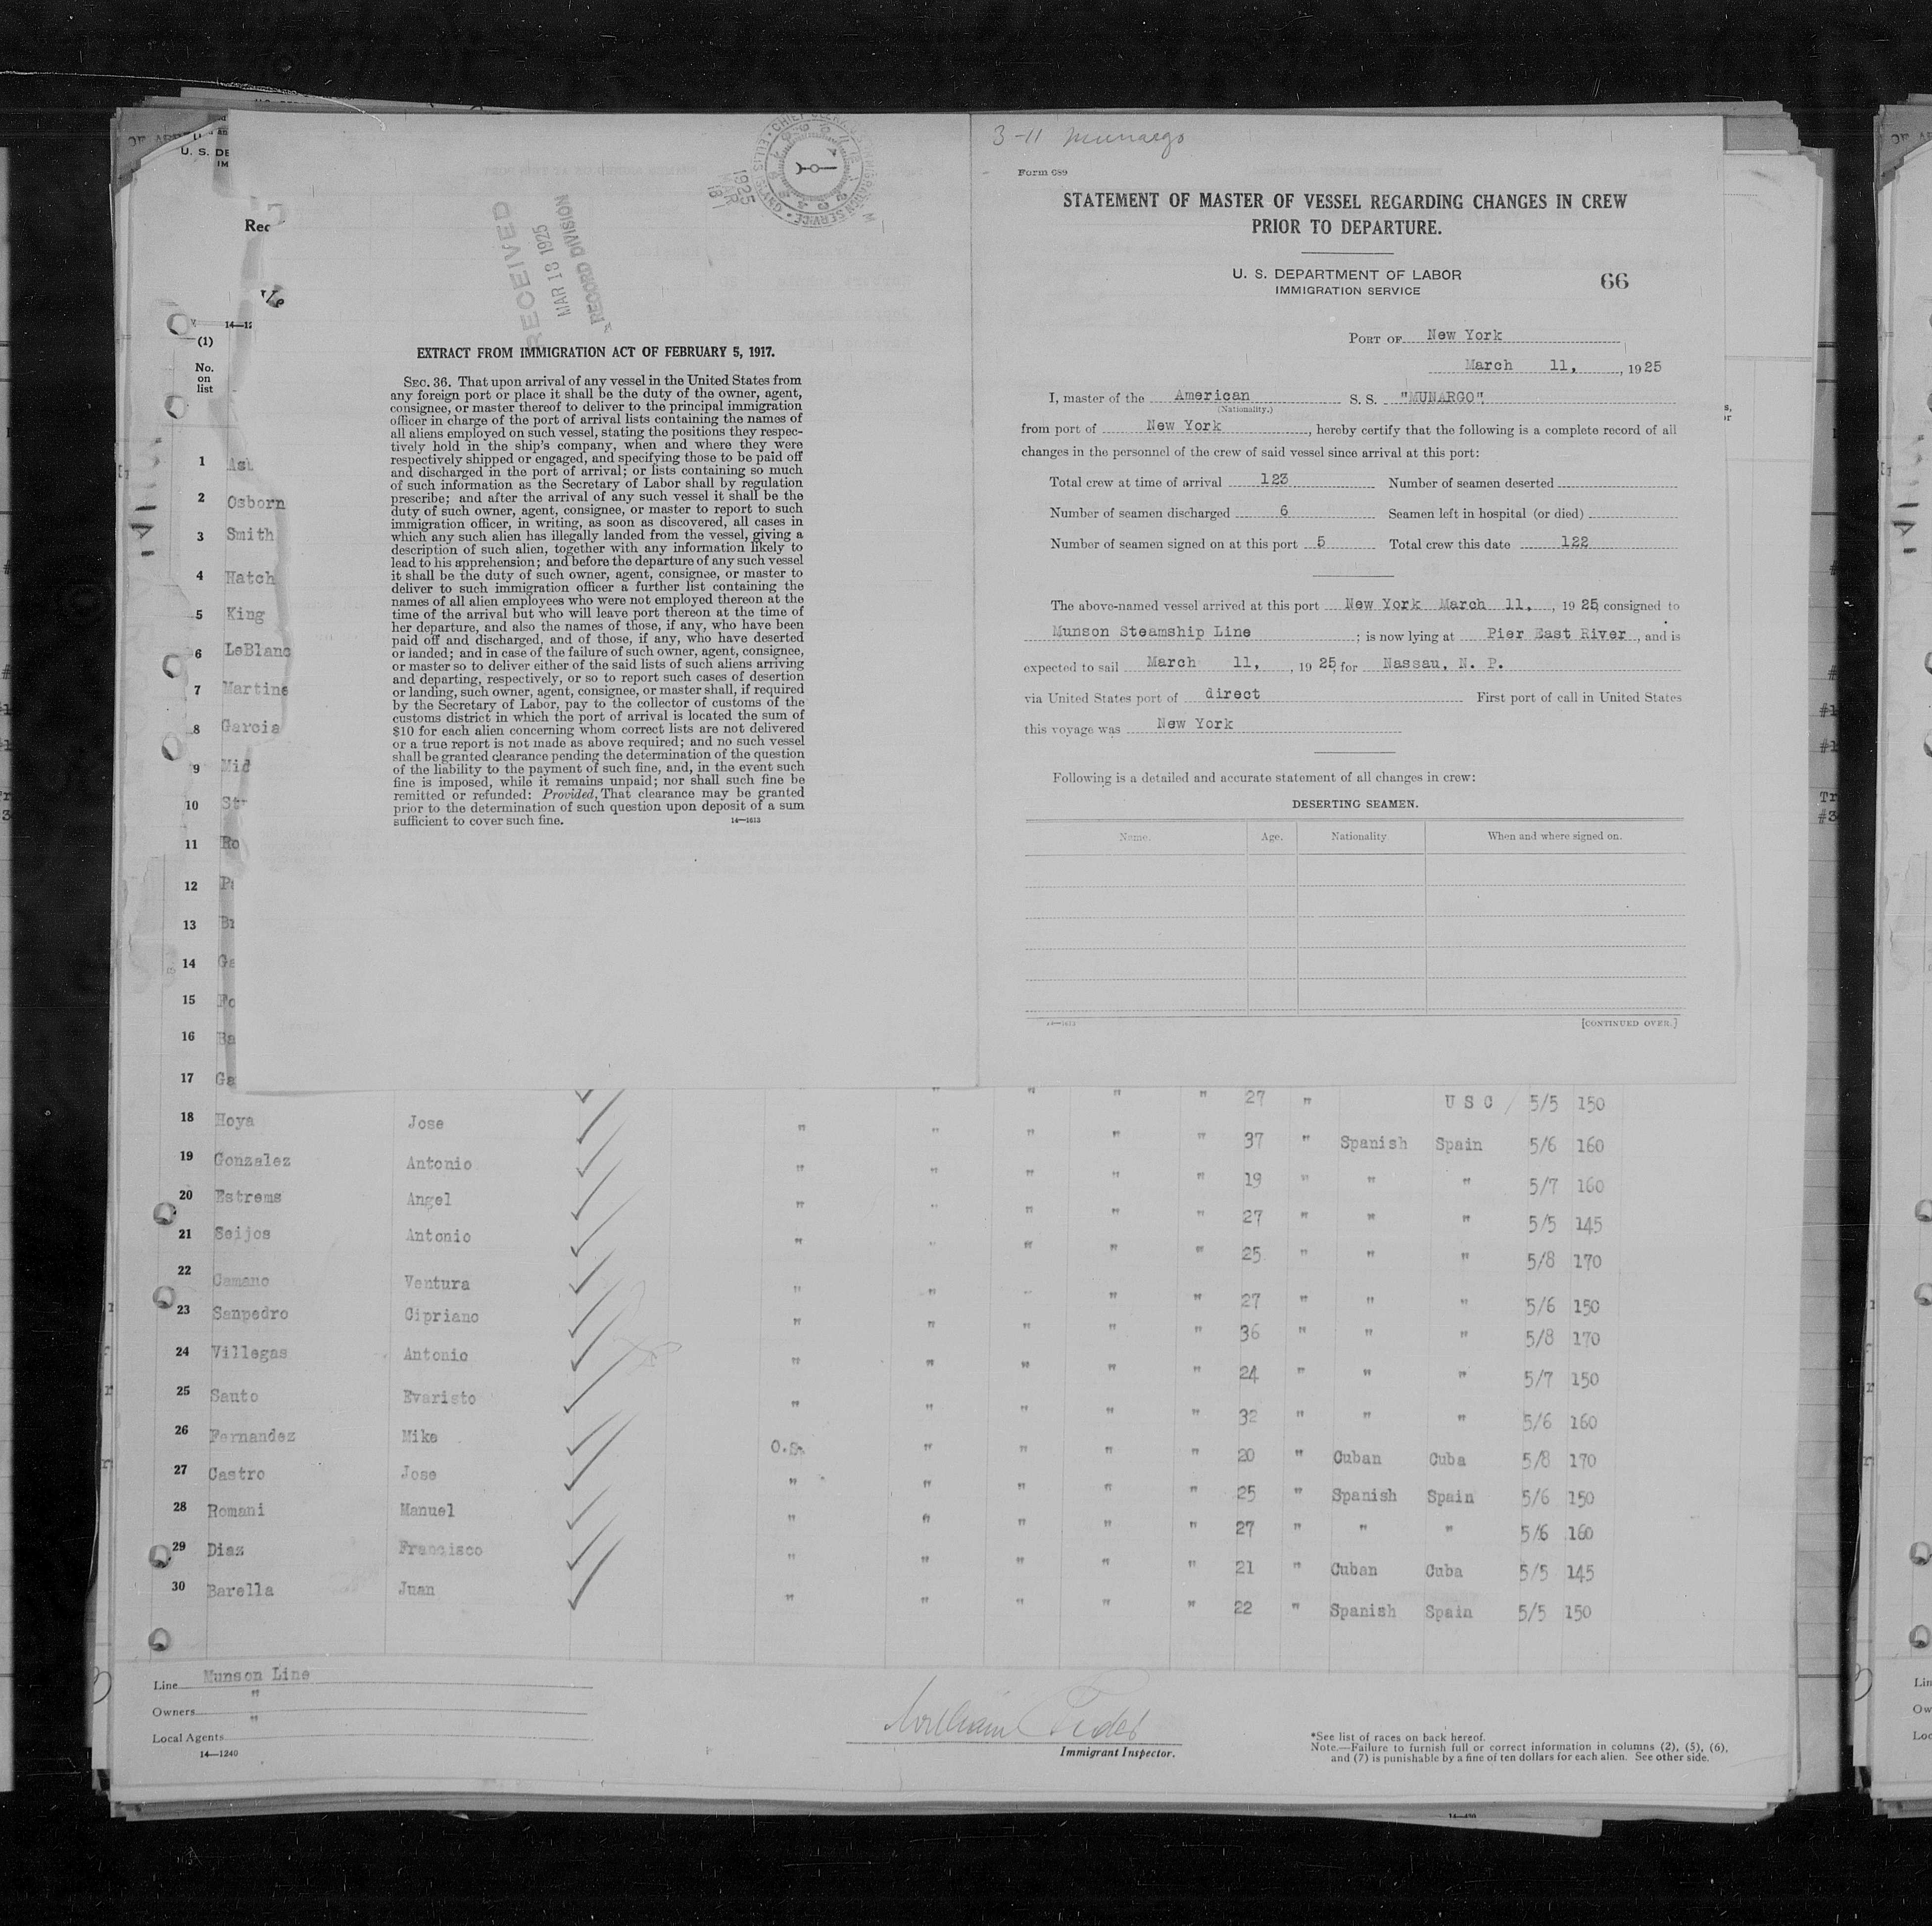 3-11 Munargo
Form 689
STATEMENT OF MASTER OF VESSEL REGARDING CHANGES IN CREW
PRIOR TO DEPARTURE.
U. S. DEPARTMENT OF LABOR
IMMIGRATION SERVICE
66
PORT OF New York
March 11, , 1925
I, master of the American S. S. "MUNARGO"
(Nationality.)
from port of New York, hereby certify that the following is a complete record of all
changes in the personnel of the crew of said vessel since arrival at this port:
Total crew at time of arrival 123 Number of seamen deserted
Number of seamen discharged 6 Seamen left in hospital (or died)
Number of seamen signed on at this port 5 Total crew this date 122
The above-named vessel arrived at this port New York March 11, , 1925, consigned to
Munson Steamship Line ; is now lying at Pier East River, and is
expected to sail March 11, , 1925, for Nassau, N. P.
via United States port of direct First port of call in United States
this voyage was New York
Following is a detailed and accurate statement of all changes in crew:
DESERTING SEAMEN.
Name. Age. Nationality When and where signed on.
[CONTINUED OVER.]
RECEIVED
MAR 18 1925
RECORD DIVISION
EXTRACT FROM IMMIGRATION ACT OF FEBRUARY 5, 1917.
SEC. 36. That upon arrival of any vessel in the United States from
any foreign port or place it shall be the duty of the owner, agent,
consignee, or master thereof to deliver to the principal immigration
officer in charge of the port of arrival lists containing the names of
all aliens employed on such vessel, stating the positions they respec-
tively hold in the ship's company, when and where they were
respectively shipped or engaged, and specifying those to be paid off
and discharged in the port of arrival; or lists containing so much
of such information as the Secretary of Labor shall by regulation
prescribe; and after the arrival of any such vessel it shall be the
duty of such owner, agent, consignee, or master to report to such
immigration officer, in writing, as soon as discovered, all cases in
which any such alien has illegally landed from the vessel, giving a
description of such alien, together with any information likely to
lead to his apprehension; and before the departure of any such vessel
it shall be the duty of such owner, agent, consignee, or master to
deliver to such immigration officer a further list containing the
names of all alien employees who were not employed thereon at the
time of the arrival but who will leave port thereon at the time of
her departure, and also the names of those, if any, who have been
paid off and discharged, and of those, if any, who have deserted
or landed; and in case of the failure of such owner, agent, consignee,
or master so to deliver either of the said lists of such aliens arriving
and departing, respectively, or so to report such cases of desertion
or landing, such owner, agent, consignee, or master shall, if required
by the Secretary of Labor, pay to the collector of customs of the
customs district in which the port of arrival is located the sum of
$10 for each alien concerning whom correct lists are not delivered
or a true report is not made as above required; and no such vessel
shall be granted clearance pending the determination of the question
of the liability to the payment of such fine, and, in the event such
fine is imposed, while it remains unpaid; nor shall such fine be
remitted or refunded: Provided, That clearance may be granted
prior to the determination of such question upon deposit of a sum
sufficient to cover such fine. 14—1613
(1)
No.
on
list
1
2 Osborn
3 Smith
4 Hatch
5 King
6 LeBlanc
7 Martine
8 Garcia
9 Mid
10 St
11 Ro
12
13 Br
14 Ga
15 Fo
16 Ba
17 Ga " " " " 27 " U S C 5/5 150
18 Hoya Jose " " " " " 37 " Spanish Spain 5/6 160
19 Gonzalez Antonio " " " " " 19 " " " 5/7 160
20 Estrems Angel " " " " " 27 " " " 5/5 145
21 Seijos Antonio " " " " " 25 " " " 5/8 170
22 Camano Ventura " " " " " 27 " " " 5/6 150
23 Sanpedro Cipriano " " " " " 36 " " " 5/8 170
24 Villegas Antonio " " " " " 24 " " " 5/7 150
25 Sauto Evaristo " " " " " 32 " " " 5/6 160
26 Fernandez Mike O.S. " " " " 20 " Cuban Cuba 5/8 170
27 Castro Jose " " " " " 25 " Spanish Spain 5/6 150
28 Romani Manuel " " " " " 27 " " " 5/6 160
29 Diaz Francisco " " " " " 21 " Cuban Cuba 5/5 145
30 Barella Juan " " " " " 22 " Spanish Spain 5/5 150
Line Munson Line
Owners "
Local Agents "
14—1240
William
Immigrant Inspector.
*See list of races on back hereof.
Note.—Failure to furnish full or correct information in columns (2), (5), (6),
and (7) is punishable by a fine of ten dollars for each alien. See other side.